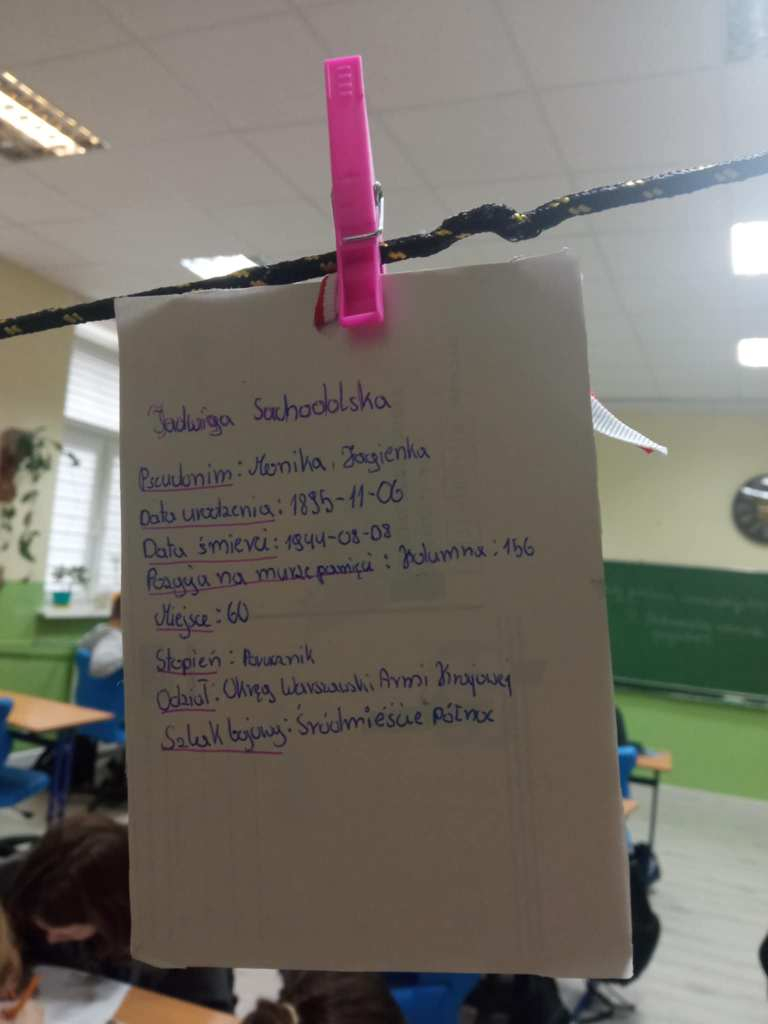 Jadwiga Sochodolska
Pseudonim: Monika, Jagienka
Data urodzenia: 1895-11-06
Data śmierci: 1944-08-08
Pozycja na murze pamięci: Kolumna: 156
Miejsce: 60
Stopień: Porucznik
Odział: Okręg Warszawski Armi Krajowej
Szlak bojowy: Śródmieście Północ